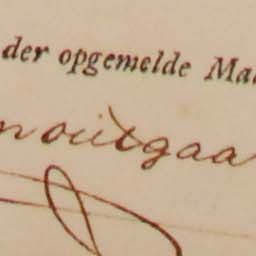 der opgemelde Maa
noutgaa